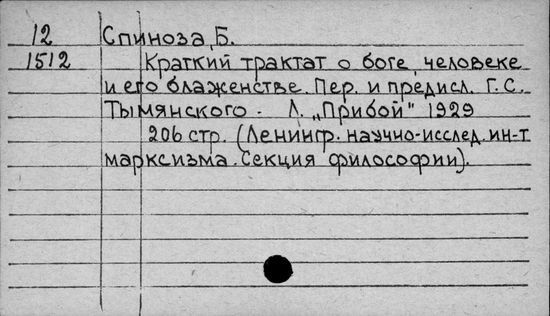 12 Спиноза, Б.
1512 Краткий трактат о боге, человеке
и его блаженстве. Пер. и предисл. Г. С.
Тымянского. Л. „Прибой" 1929
206 стр. (Ленингр. научно-исслед. ин-т
марксизма. Секция философии).